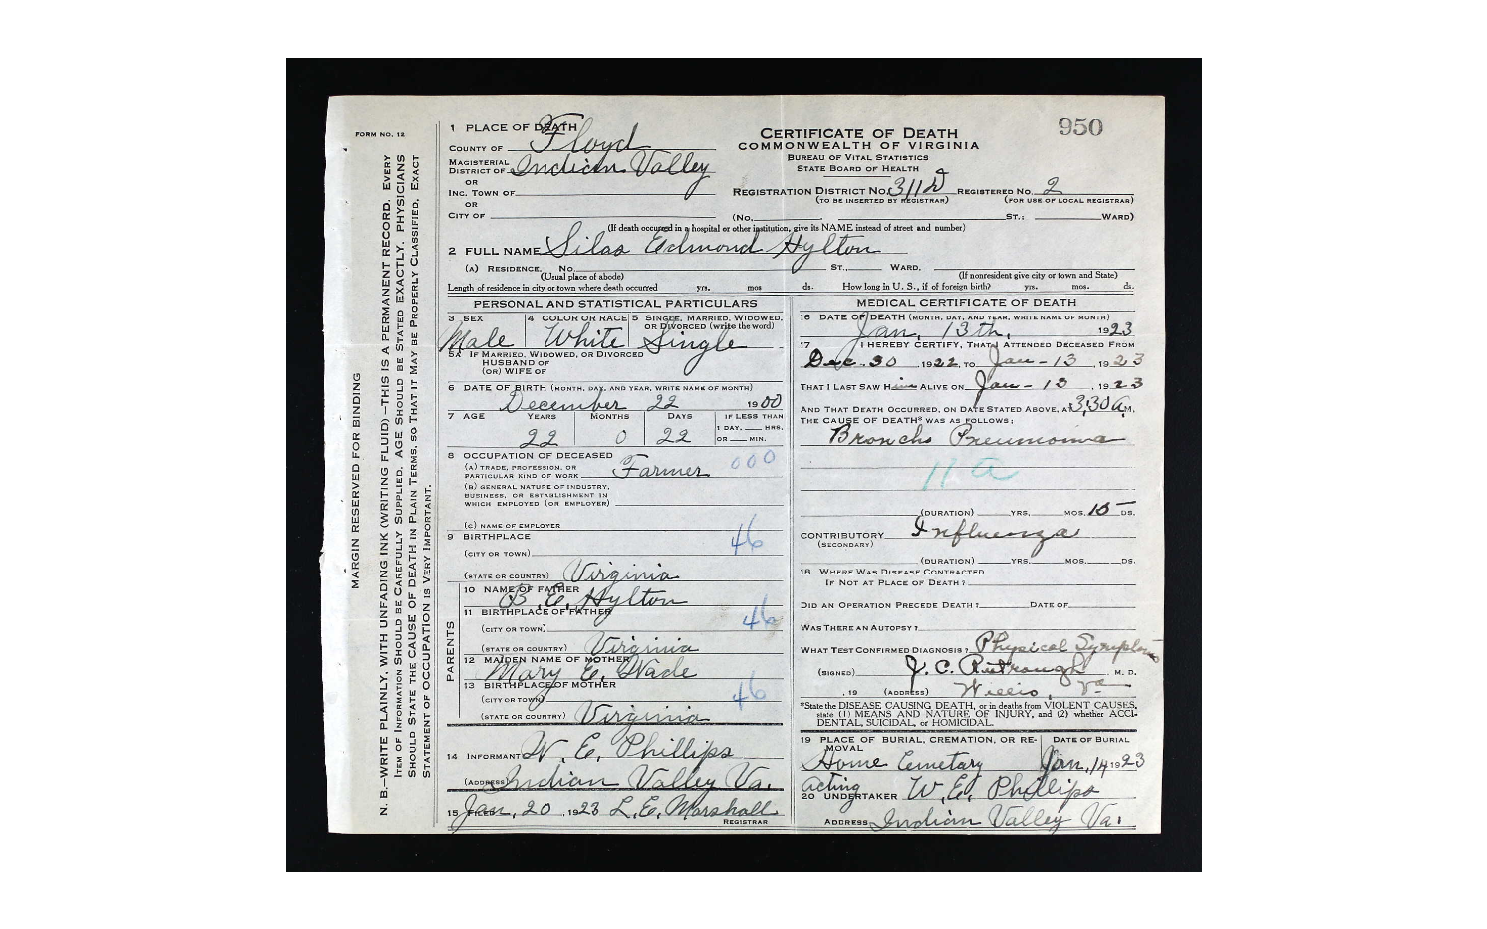 FORM NO. 12
MARGIN RESERVED FOR BINDING
N. B.—WRITE PLAINLY, WITH UNFADING INK (WRITING FLUID)—THIS IS A PERMANENT RECORD. EVERY
ITEM OF INFORMATION SHOULD BE CAREFULLY SUPPLIED. AGE SHOULD BE STATED EXACTLY. PHYSICIANS
SHOULD STATE THE CAUSE OF DEATH IN PLAIN TERMS, SO THAT IT MAY BE PROPERLY CLASSIFIED. EXACT
STATEMENT OF OCCUPATION IS VERY IMPORTANT.
950
CERTIFICATE OF DEATH
COMMONWEALTH OF VIRGINIA
BUREAU OF VITAL STATISTICS
STATE BOARD OF HEALTH
1 PLACE OF DEATH
COUNTY OF Floyd
MAGISTERIAL DISTRICT OF Indian Valley
OR
INC. TOWN OF
OR
CITY OF
REGISTRATION DISTRICT NO. 311D REGISTERED NO. 2
(TO BE INSERTED BY REGISTRAR) (FOR USE OF LOCAL REGISTRAR)
(NO. ST.; WARD)
(If death occured in a hospital or other institution, give its NAME instead of street and number)
2 FULL NAME Silas Edmond Hylton
(A) RESIDENCE. No. ST., WARD.
(Usual place of abode) (If nonresident give city or town and State)
Length of residence in city or town where death occurred yrs. mos ds. How long in U. S., if of foreign birth? yrs. mos. ds.
PERSONAL AND STATISTICAL PARTICULARS
3 SEX 4 COLOR OR RACE 5 SINGLE, MARRIED, WIDOWED, OR DIVORCED (write the word)
Male White Single
5A IF MARRIED, WIDOWED, OR DIVORCED
HUSBAND OF
(OR) WIFE OF
6 DATE OF BIRTH (MONTH, DAY, AND YEAR, WRITE NAME OF MONTH)
December 22 1900
7 AGE YEARS MONTHS DAYS IF LESS THAN
1 DAY, HRS.
OR MIN.
22 0 22
8 OCCUPATION OF DECEASED
(A) TRADE, PROFESSION, OR
PARTICULAR KIND OF WORK Farmer 000
(B) GENERAL NATURE OF INDUSTRY,
BUSINESS, OR ESTABLISHMENT IN
WHICH EMPLOYED (OR EMPLOYER)
(C) NAME OF EMPLOYER
9 BIRTHPLACE 46
(CITY OR TOWN)
(STATE OR COUNTRY) Virginia
PARENTS
10 NAME OF FATHER
B. E. Hylton
11 BIRTHPLACE OF FATHER 46
(CITY OR TOWN)
(STATE OR COUNTRY) Virginia
12 MAIDEN NAME OF MOTHER
Mary E. Wade
13 BIRTHPLACE OF MOTHER 46
(CITY OR TOWN)
(STATE OR COUNTRY) Virginia
14 INFORMANT W. E. Phillips
(ADDRESS) Indian Valley Va.
15 FILED Jan. 20, 1923 L. E. Marshall
REGISTRAR
MEDICAL CERTIFICATE OF DEATH
16 DATE OF DEATH (MONTH, DAY, AND YEAR, WRITE NAME OF MONTH)
Jan. 13th, 1923
17 I HEREBY CERTIFY, THAT I ATTENDED DECEASED FROM
Dec. 30 1922, TO Jan - 13, 1923
THAT I LAST SAW Him ALIVE ON Jan - 13, 1923
AND THAT DEATH OCCURRED, ON DATE STATED ABOVE, AT 3:30 A M.
THE CAUSE OF DEATH* WAS AS FOLLOWS:
Broncho Pneumonia
11a
(DURATION) YRS. MOS. 15 DS.
CONTRIBUTORY Influenza
(SECONDARY)
(DURATION) YRS. MOS. DS.
18 WHERE WAS DISEASE CONTRACTED
IF NOT AT PLACE OF DEATH?
DID AN OPERATION PRECEDE DEATH? DATE OF
WAS THERE AN AUTOPSY?
WHAT TEST CONFIRMED DIAGNOSIS? Physical Symptoms
(SIGNED) J. C. Rutrough M. D.
, 19 (ADDRESS) Willis, Va
*State the DISEASE CAUSING DEATH, or in deaths from VIOLENT CAUSES,
state (1) MEANS AND NATURE OF INJURY, and (2) whether ACCI-
DENTAL, SUICIDAL, or HOMICIDAL.
19 PLACE OF BURIAL, CREMATION, OR RE-
MOVAL DATE OF BURIAL
Home Cemetary Jan. 14 1923
acting
20 UNDERTAKER W. E. Phillips
ADDRESS Indian Valley Va.